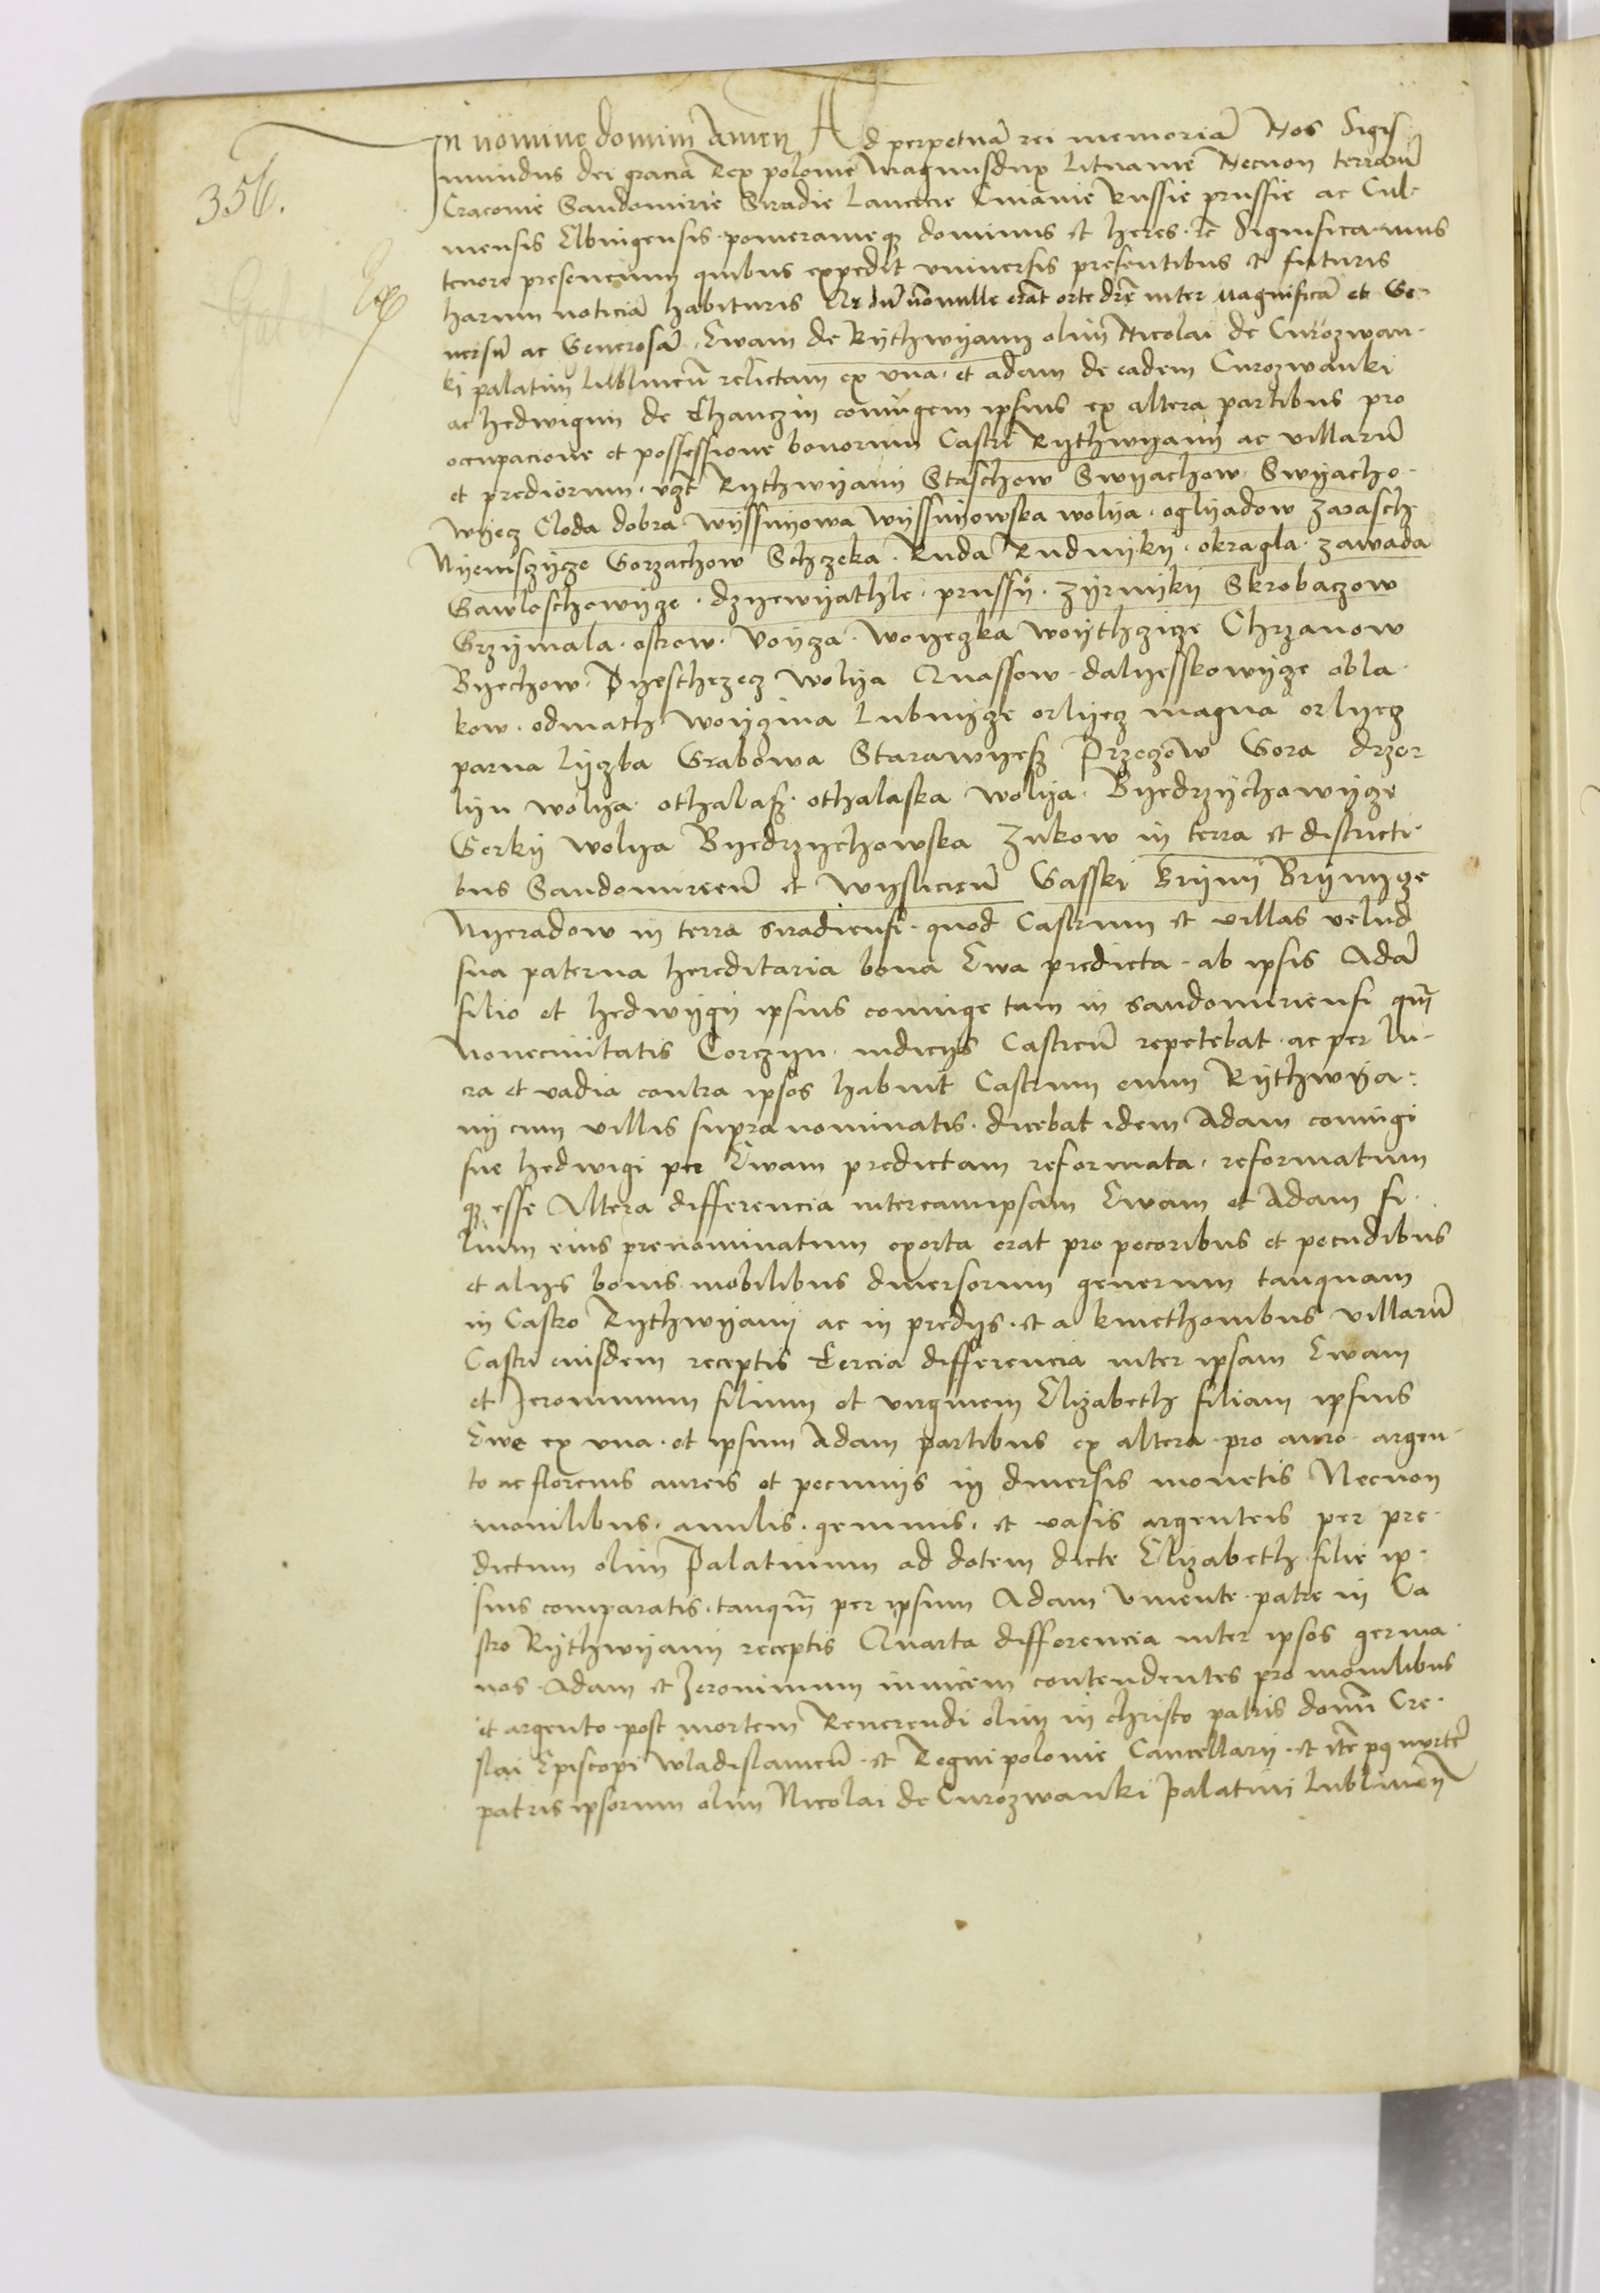 In nomine domini Amen Ad perpetuā rei memoriā Nos Sigis
mundus dei gracia Rex polonie magnusdux Lituanie Necnon terrarū
356.
Cracovie Sandomirie Siradie Lancicie Cuiavie Russie prussie ac Cul-
mensis Elbingensis pomeranieqꝫ dominus et heres · rc Significamus
tenore presencium quibus expedit universis presentibus et futuris
harum noticiā habituris Qr dū nōnulle erāt orte drē inter magnificā et Ge-
nersū ac Generosā Ewam de Rythwyany olim Nicolai de Curozwan-
ki palatini Lublineñ relictam ex una et adam de eadem Curozwanki
ac hedwigim de Thanczin coniugem ipsius ex altera partibus pro
occupacione et possessione bonorum Castri Rythwyany ac villarū
et prediorum · vzt Rythwyany Staschow Swyachow Swyacho-
wyecz Cloda dobra wyssnyowa wyssnyowska wolya · oglyadow zarasche
Nyemsczycze Gorzachow Schczeka · Ruda Rudnyky · okragla · zawada
Gawloschowycze · dzyewyathle · prussy · zyrnyky Skrobaczow
Grzymala · ostrow · Voycza · Woyeczka woythczicze Chrzanow
Byechow · Pyeschczecz wolya Quassow · dalyesskowycze obla-
kow · odmath woyczina Lubnycze orlyecz magna orlyecz
parva Lyczba Grabowa Starawyesz Przeczow Gora drzer
lyn wolya · othalasz · othalaska wolya · Byedrzychowycze
Gorky wolya Byedrzychowska Zukow in terra et districti-
bus Sandomireñ et wysliceñ Gasski Brÿnÿ Brynycze
Nyeradow in terra siradiensi · quod Castrum et villas velud
sua paterna hereditaria bona Ewa predicta · ab ipsis Adā
filio et hedwygy ipsius coniuge tam in sandomiriensi qm̄
Novecivitatis Corczyn · iudicys Castreñ repetebat · ac per lu-
cra et vadia contra ipsos habuit Castrum enim Rythwya-
ny cum villis supra nominatis · dicebat idem Adam coniugi
sue hedwigi per Ewam predictam reformata · reformatum
qꝫ esse Altera differencia intereamipsam Ewam et Adam fi-
lium eius prenominatum exorta erat pro pecoribus et pecudibus
et alys bonis mobilibus diversorum generum tanquam
in Castro Rythwyany ac in predys · et a kmethonibus villarū
Castri eiusdem receptis Tercia differencia inter ipsam Ewam
et Jeronimum filium et virginem Elizabeth filiam ipsius
Ewe ex una · et ipsum Adam partibus ex altera · pro auro · argen-
to ac florenis aureis et pecunys in diversis monetis Necnon
monilibus · anulis · gemmis · et vasis argenteis per pre-
dictum olim Palatinum ad dotem dicte Elizabeth · filie ip-
sius comparatis · tanqm̄ per ipsum Adam vivente · patre in Ca
stro Rythwyany receptis Quarta differencia inter ipsos germa-
nos · Adam et Jeronimum invicem contendentes pro monilibus
et argento · post mortem Reverendi olim in christo patris domī Cre-
slai Episcopi Wladislavieñ · et Regni polonie Cancellary · et itē pq mortē
patris ipsorum olim Nicolai de Curozwanki palatini Lublineñ